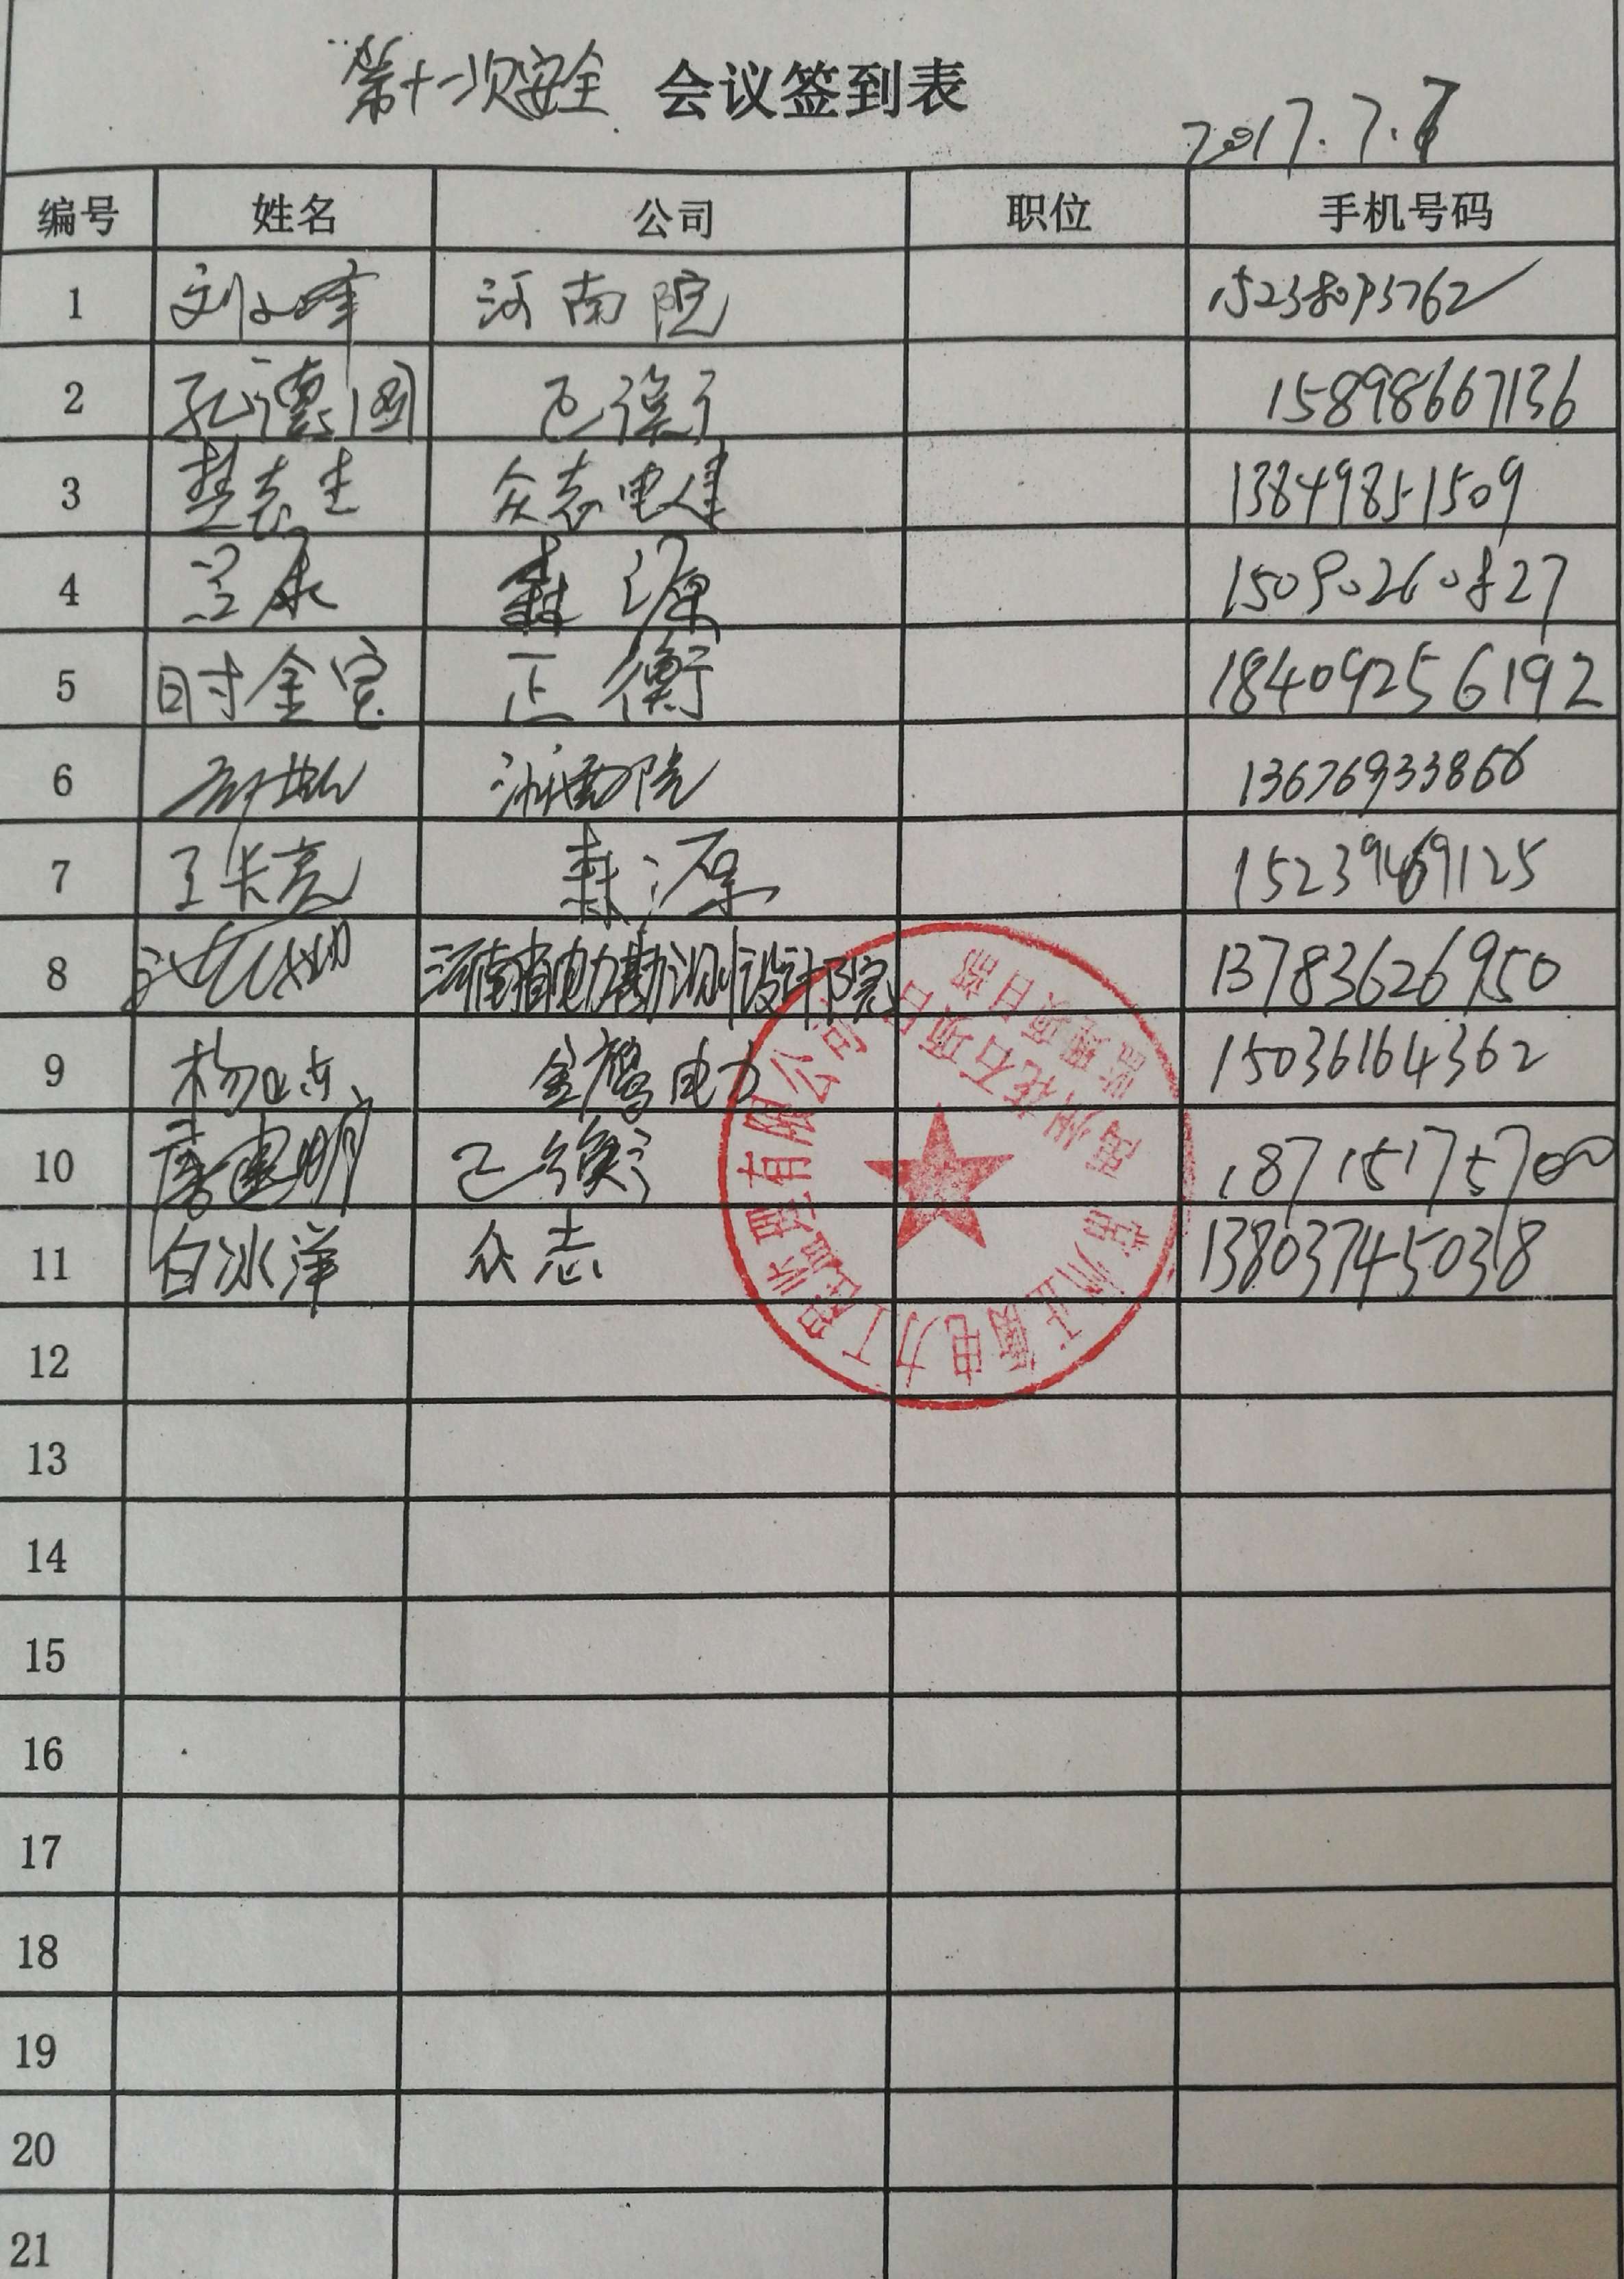 第十一次安全 会议签到表
2017.7.7
编号 姓名 公司 职位 手机号码
1 刘 峰 河南院 15238093762
2 孔德国 15898667136
3 楚志生 众志电建 13849851509
4 森源 15090260827
5 时金宝 正衡 18409256192
6 河南院 13676933866
7 王长亮 森源 15239469125
8 河南省电力勘测设计院 13783626950
9 杨 金鹰电力 15036164362
10 唐建明 18715175700
11 白冰洋 众志 13803745038
常州正衡电力工程监理有限公司
禹州花石项目
监理项目部
12
13
14
15
16
17
18
19
20
21